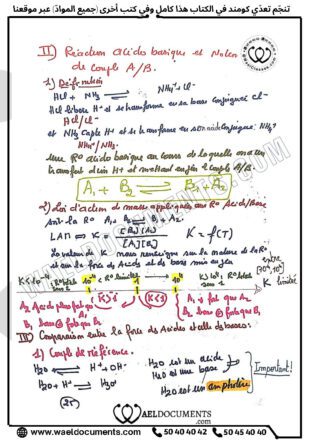 تنجّم تعدّي كومند في الكتاب هذا كامل وفي كتب أخرى (جميع المواد) عبر موقعنا
WaelDocuments.com
II) Réaction acido basique et Notion
de couple A/B.
1) Définition
HCl + NH₃ ⇌ NH₄⁺ + Cl⁻
HCl libère H⁺ et se transforme en sa base conjuguée Cl⁻
HCl/Cl⁻
et NH₃ capte H⁺ et se transforme en son acide conjugué: NH₄⁺
NH₄⁺/NH₃.
une R° acido basique au cours de laquelle on a un
transfert d'un H⁺ et mettant en jeu 2 couple A/B.
A₁ + B₂ ⇌ B₁ + A₂
2) Loi d'action de masse appliquée aux R° Acid/Base
soit la R° A₁ B₂ ⇌ B₁ + A₂.
LAM ⇔ K = [B₁][A₂] / [A₁][B₂] K = f(T)
La valeur de K nous renseigne sur la nature de la R°
et sur la force des Acides et des bases mis en jeu
10⁻⁴ R° limitée 1 10⁴ K>10⁴: R° totale
sens 1
entre
K limitée
K>1 K<1
A₁ est fort que A₂
B₂ base fort que B₁
III) Comparaison entre la force des Acides et celle des bases.
1) Couple de référence.
H₂O ⇌ H⁺ + OH⁻
H₂O + H⁺ ⇌ H₃O⁺
H₂O est un acide
H₂O est une base
H₂O est un ampholyte
Important!
(25)
WAELDOCUMENTS
.com
www.waeldocuments.com
50 45 40 42
50 40 40 40